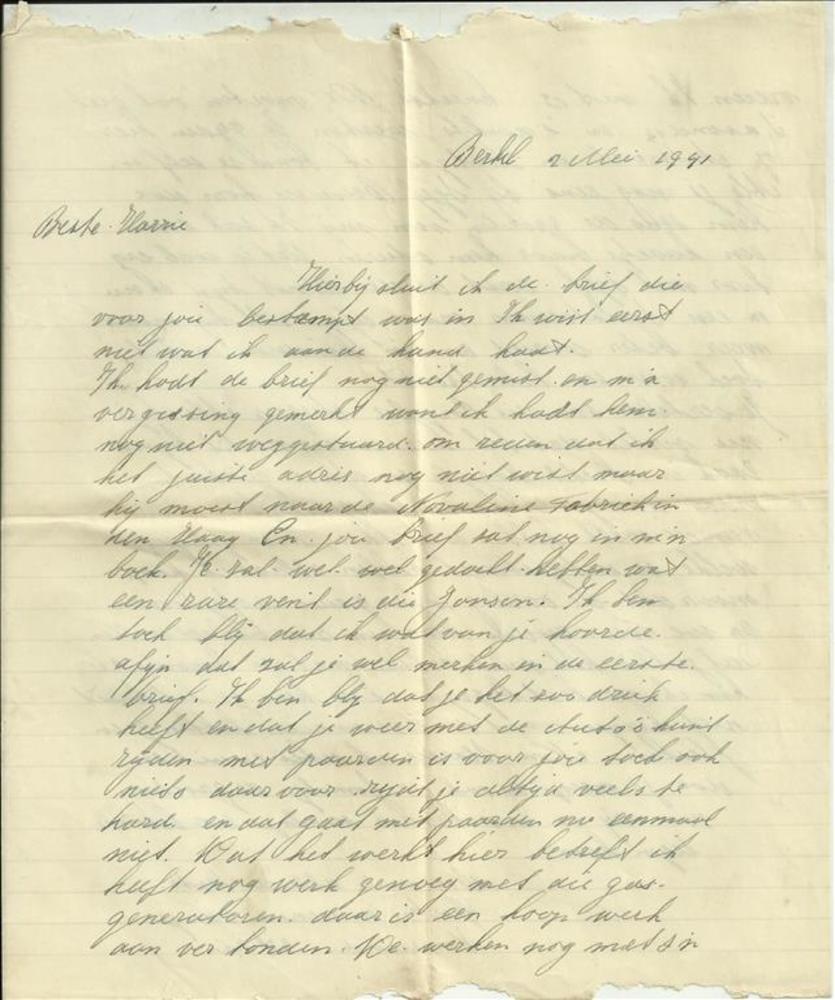 Berkel 2 Mei 1941
Beste Harrie
Hierbij sluit ik de brief die
voor jou bestempt was in Ik wist eerst
niet wat ik aan de hand hadt.
Ik hadt de brief nog niet gemist en m'n
vergissing gemerkt want ik hadt hem
nog niet weggestuurd. om reden dat ik
het juiste adres nog niet wist maar
hij moest naar de Novaline Fabriek in
den Haag En jou brief zat nog in m'n
boek. Je zal wel wel gedacht hebben wat
een rare vent is die Jonsen. Ik ben
toch blij dat ik wat van je hoorde.
afijn dat zal je wel merken in de eerste
brief. Ik ben blij dat je het zoo druk
heeft en dat je weer met de Auto's kunt
rijden met paarden is voor jou toch ook
niets daarvoor rijdt je altijd veels te
hard. en dat gaat met paarden nu eenmaal
niet. Wat het werk hier betreft ik
heeft nog werk genoeg met die gas-
generatoren. daar is een hoop werk
aan verbonden. We werken nog met z'n